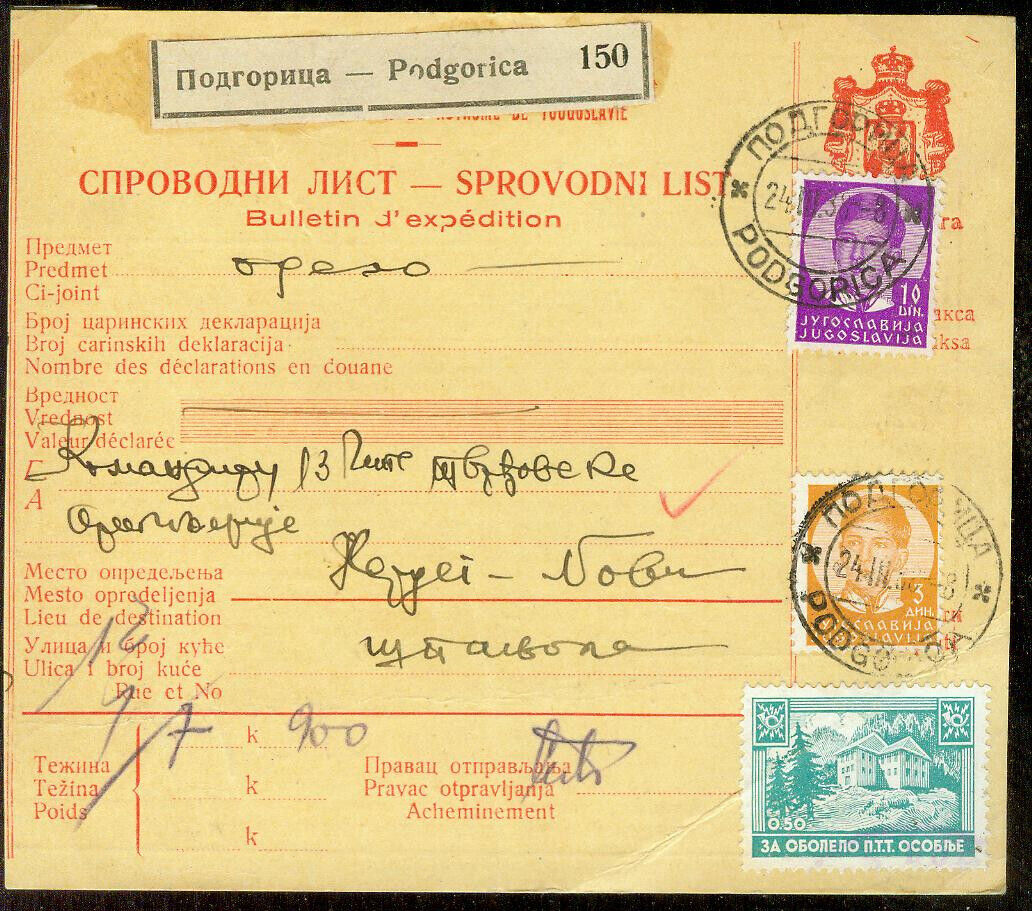 Подгорица — Podgorica 150
DE YOUGOSLAVIE
СПРОВОДНИ ЛИСТ — SPROVODNI LIST
Bulletin d'expédition
Предмет
Predmet одело
Ci-joint
Број царинских декларација
Broj carinskih deklaracija
Nombre des déclarations en douane
Вредност
Vrednost
Valeur déclarée
Командиру 13
A
Место опредељења
Mesto opredeljenja
Lieu de destination
Улица и број куће
Ulica i broj kuće
Rue et No
k 900
Тежина
Težina k
Poids
k
Правац отправљања
Pravac otpravljanja
Acheminement
ПОДГОРИЦА
24 III 3 -8
PODGORICA
10
DIN.
ЈУГОСЛАВИЈА
JUGOSLAVIJA
га
акса
aksa
ПОДГОРИЦА
24.III.3 -8
PODGORICA
3
ДИН.
ЈУГОСЛАВИЈА
JUGOSLAVIJA
0.50
ЗА ОБОЛЕЛО П.Т.Т. ОСОБЉЕ